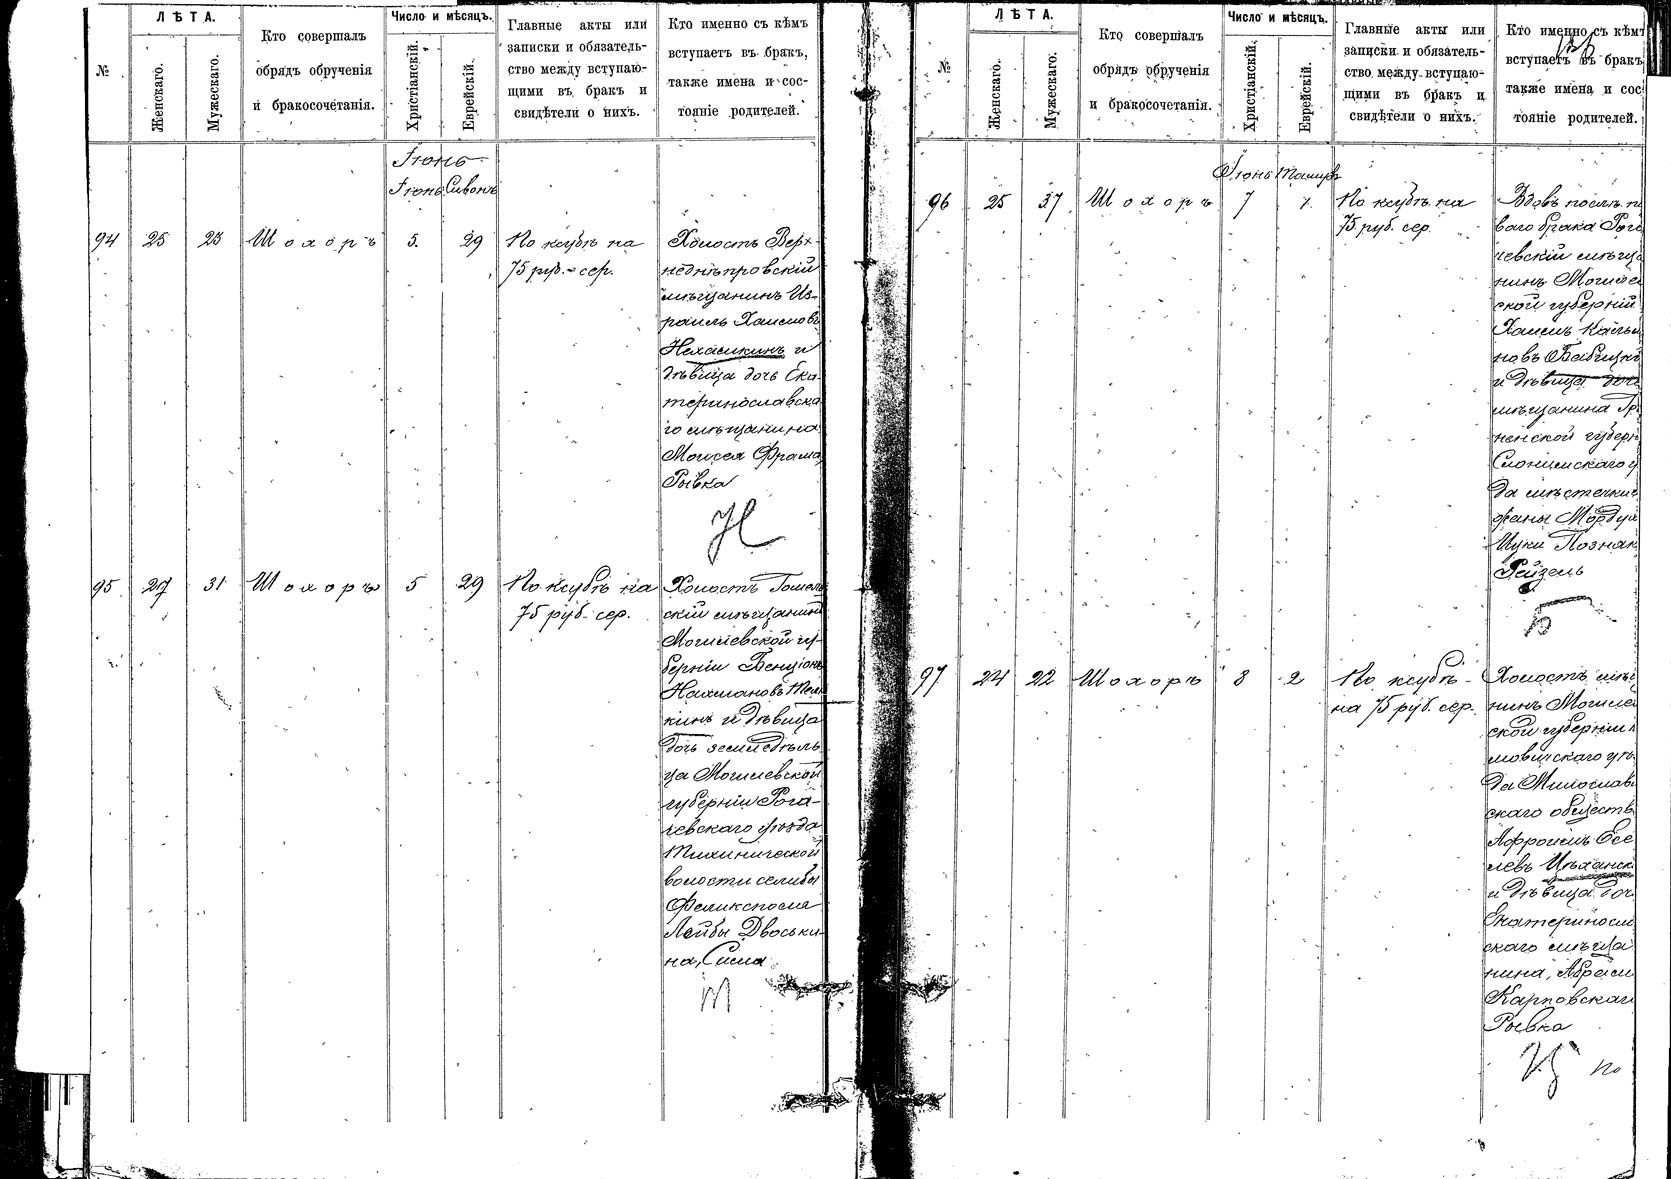 №
ЛѢТА.
Женскаго.
Мужескаго.
Кто совершалъ
обрядъ обрученія
и бракосочетанія.
Число и мѣсяцъ.
Христіанскій.
Еврейскій.
Главные акты или
записки и обязатель-
ство между вступаю-
щими въ бракъ и
свидѣтели о нихъ.
Кто именно съ кѣмъ
вступаетъ въ бракъ,
также имена и сос-
тояніе родителей.
Іюнь
Іюнь Сивонъ
94 25 23 Шохоръ 5. 29 По ксубѣ на
75 руб. сер.
Холостъ Верх-
недньпровскій
мѣщанинъ Из-
раиль Хаимовъ
Нехамкинъ и
дѣвица дочь Ека-
теринославска-
го мѣщанина
Моисея Фрама
Рывка
Н
95 27 31 Шохоръ 5 29 По ксубѣ на
75 руб. сер.
Холостъ Гомель
скій мѣщанинъ
Могилевской гу-
берніи Бенціонъ
Нахмановъ
кинъ и дѣвица
дочь земледѣль
ца Могилевской
губерніи Рога-
чевскаго уѣзда
Тихинической
волости селибы
Фелик
Лейбы Двоськи-
на, Сима
Т
№
ЛѢТА.
Женскаго.
Мужескаго.
Кто совершалъ
обрядъ обрученія
и бракосочетанія.
Число и мѣсяцъ.
Христіанскій.
Еврейскій.
Главные акты или
записки и обязатель-
ство между вступаю-
щими въ бракъ и
свидѣтели о нихъ.
Кто именно съ кѣмъ
вступаетъ въ бракъ
также имена и сос-
тояніе родителей.
Іюнь Тамузъ
96 25 37 Шохоръ 7 1. По ксубѣ на
75 руб. сер.
Вдовъ послѣ п
ваго брака Рога
чевскій мѣща
нинъ Могилев
ской губерніи
Хаимъ Кальм
новъ Бабицкій
и дѣвица дочь
мѣщанина Гро
ненской губерн
Слонимскаго у
да мѣстечка
Мордух
Позняк
Рейзель
Б
97 24 22 Шохоръ 8 2 По ксубѣ
на 75 руб. сер.
Холостъ мѣщ
нинъ Могиле
ской губерніи
мовичскаго уѣ
да Милослав
скаго обществ
Афроимъ Осе
левъ
и дѣвица доч
Екатериносл
скаго мѣща
нина, Абрам
Карповскаг
Рывка
Ц по